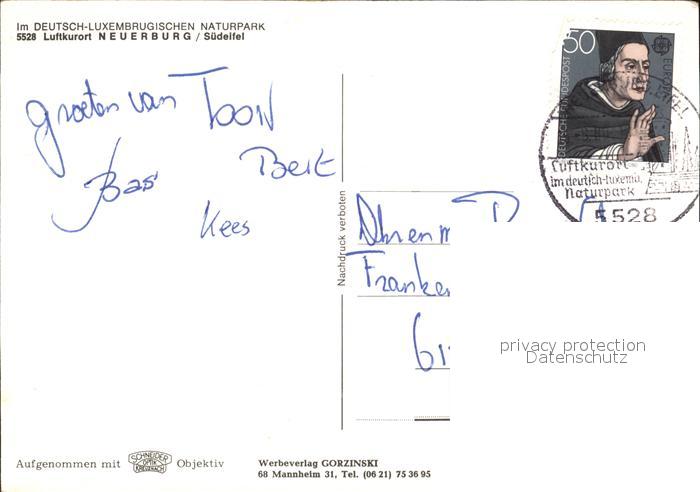 Im DEUTSCH-LUXEMBRUGISCHEN NATURPARK
5528 Luftkurort NEUERBURG / Südeifel
50
DEUTSCHE BUNDESPOST
EUROPA
Luftkurort
im deutsch-luxemb.
Naturpark
5528
groeten van Toon
Bert
Bas
Kees
Nachdruck verboten
Franke
61
privacy protection
Datenschutz
Aufgenommen mit SCHNEIDER OPTIK KREUZNACH Objektiv
Werbeverlag GORZINSKI
68 Mannheim 31, Tel. (06 21) 75 36 95